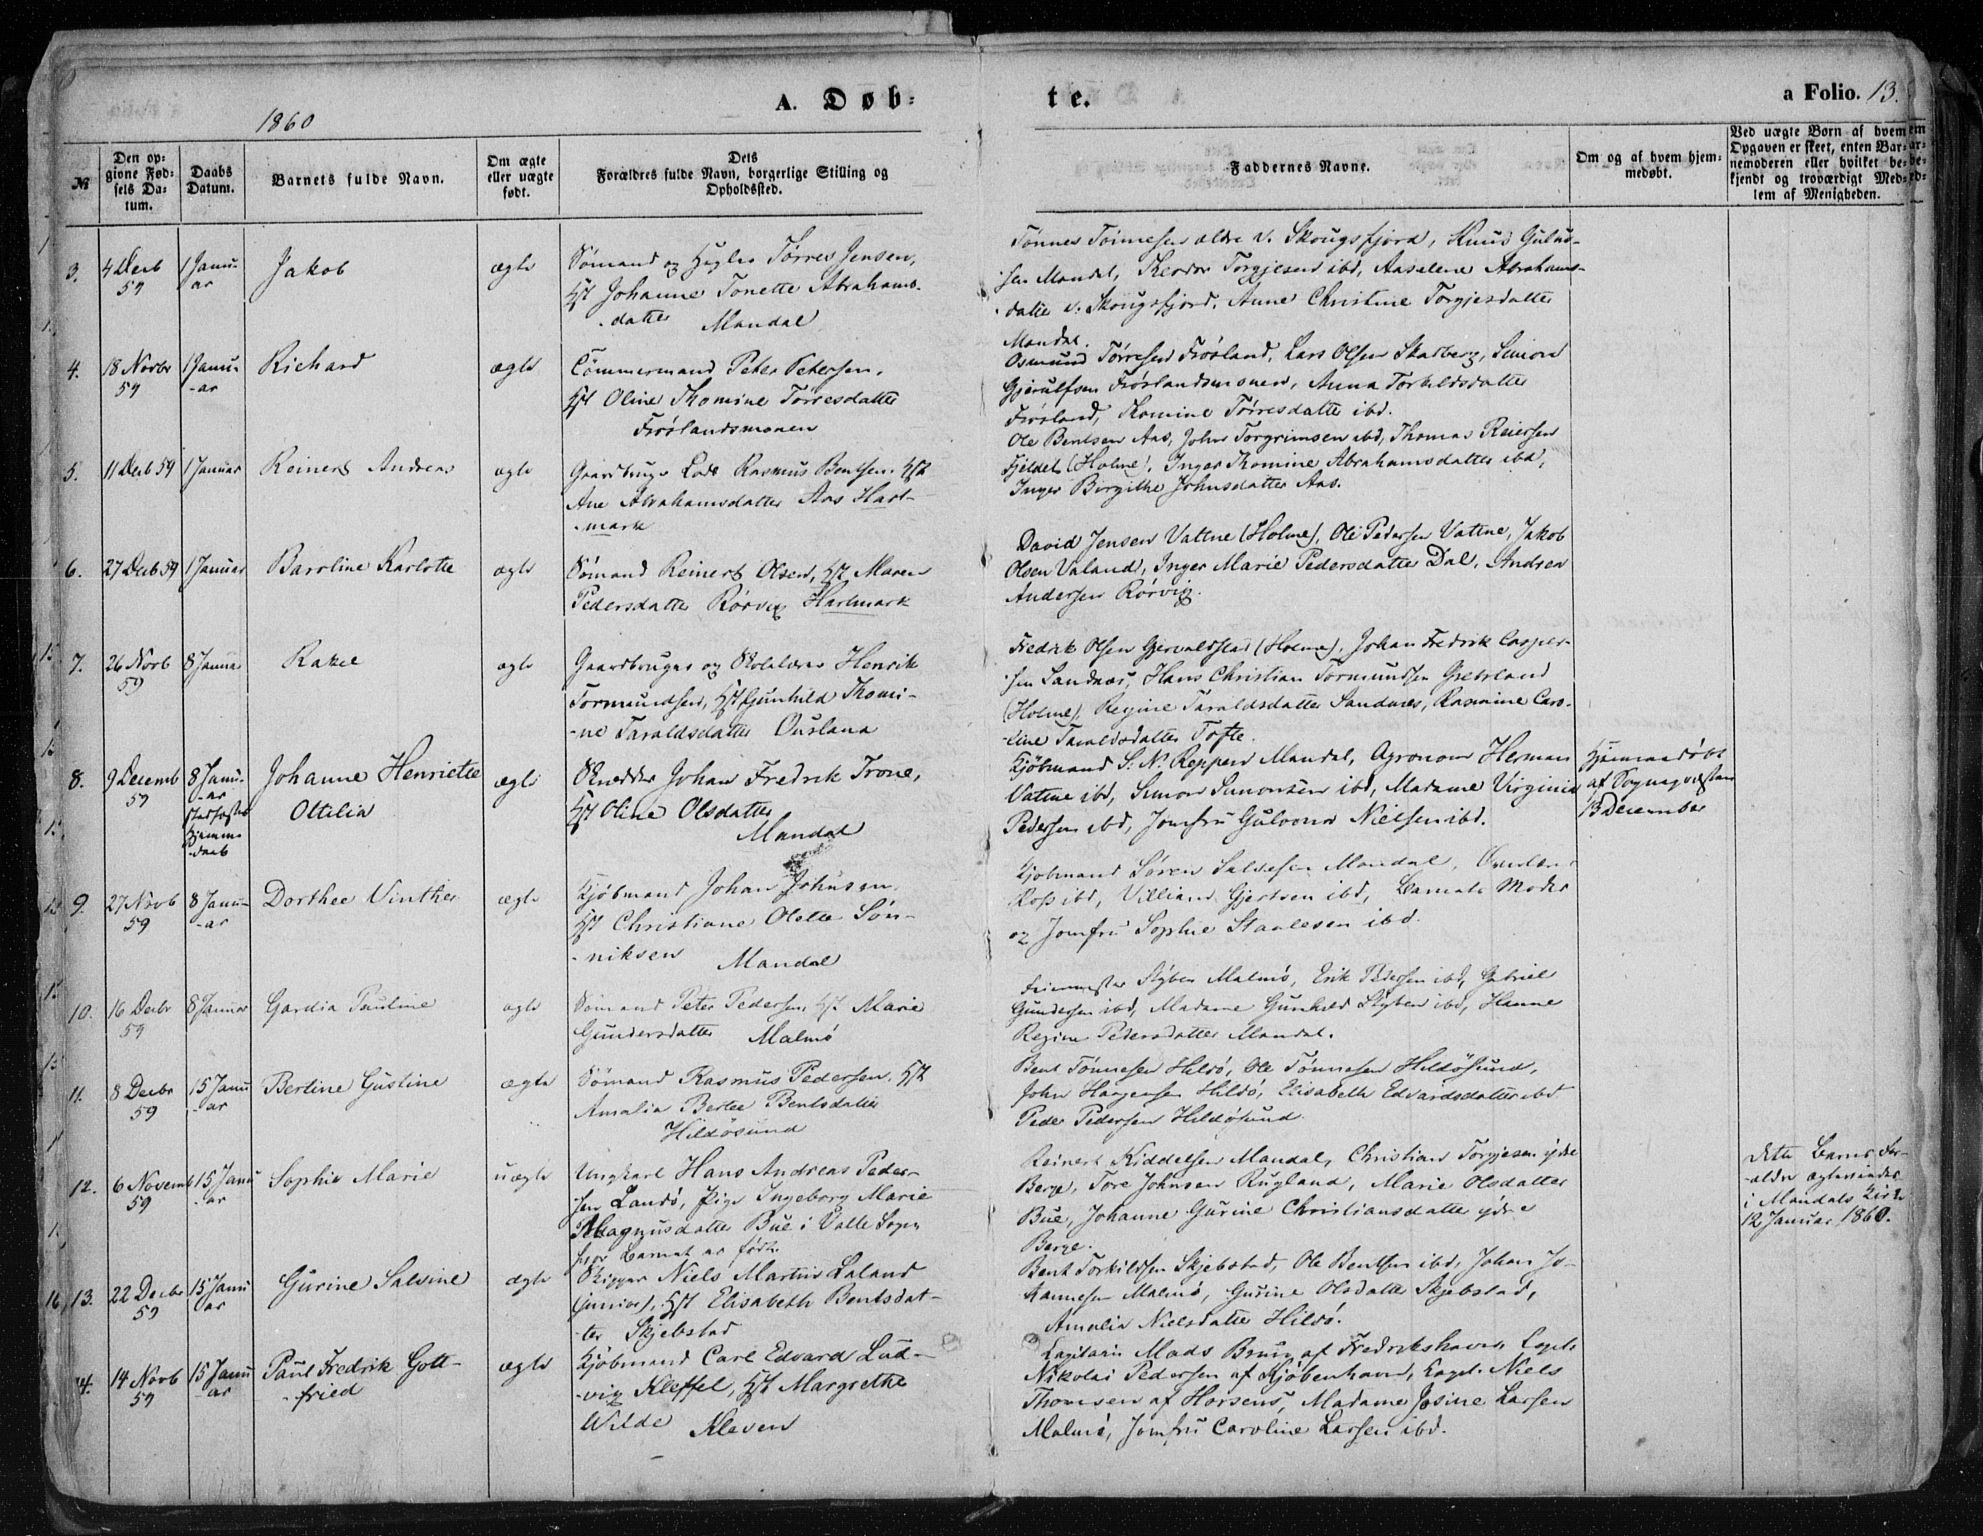 A. Døb-
te.
a Folio. 13.
1860
№
Den op-
givne Fød-
sels Da-
tum.
Daabs
Datum.
Barnets fulde Navn.
Om ægte
eller uægte
født.
Dets
Forældres fulde Navn, borgerlige Stilling og
Opholdssted.
Faddernes Navne.
Om og af hvem hjem-
medøbt.
Ved uægte Børn af hvem
Opgaven er skeet, enten Bar-
nemoderen eller hvilket be-
kjendt og troværdigt Med-
lem af Menigheden.
3.
4 Decb
59
1 Janu-
ar
Jakob
ægte
Sømand og Tørres Jensen,
Hst Johanne Tonette Abrahams-
-datter Mandal
Tønnes Tønnesen ældre v. Skougsfjord, Knud Gulus-
-sen Mandal, Theodor Torgjesen ibd, Aaselene Abrahams-
-datter v. Skougsfjord, Anne Christine Torgjesdatter
Mandal.
4.
18 Novbr
59
1 Janu-
-ar
Richard
ægte
Tømmermand Peter Petersen,
Hst Oline Thomine Tørresdatter
Frøslandsmonen
Osmund Tørresen Frøsland, Lars Olsen Skarberg, Simon
Gjerulfsen Frøslandsmonen, Anna Torkildsdatter
Frøsland, Thomine Tørresdatter ibd.
5.
11 Decb 59
1 Januar
Reinert Andreas
ægte
Gaardbruger Rasmus Bentsen, Hst
Ane Abrahamsdatter Aas Hart-
-mark
Ole Bentsen Aas, John Torgrimsen ibd, Thomas Reiersen
Fjeldet (Holme), Inger Thomine Abrahamsdatter ibd,
Inger Birgithe Johnsdatter Aas.
6.
27 Decb 59
1 Januar
Baroline Karlotte
ægte
Sømand Reinert Olsen, Hst Maren
Pedersdatter Rørvig Hartmark
David Jensen Vattne (Holme), Ole Pedersen Vattne, Jakob
Olsen Valand, Inger Marie Pedersdatter Dal, Andrea
Andersen Rørvig.
7.
26 Novb
59
8 Januar
Rakel
ægte
Gaardbruger og Skolelærer Henrik
Tormundsen, Hst Gunhild Thomi-
-ne Taraldsdatter Ouslana
Fredrik Olsen Gjervoldstad (Holme), Johan Fredrik Casper-
-sen Sandnæs, Hans Christian Tormundsen Grebstad
(Holme), Regine Taraldsdatter Sandnes, Rasmine Caro-
-line Taraldsdatter Tofte.
8.
9 Decemb
59
8 Janu-
-ar
stadfæstet
Hjemme-
daab
Johanne Henriette
Ottilia
ægte
Snedker Johan Fredrik Trone,
Hst Oline Olsdatter
Mandal
Kjøbmand S. N. Reppen Mandal, Agronom Herman
Vattne ibd, Simon Simonsen ibd, Madame Virginia
Pedersen ibd, Jomfru Gulvona Nielsen ibd.
Hjemmedøbt
af Sognepræsten
13 December
9.
27 Novb
59
8 Janu-
-ar
Dorthee Vinther
ægte
Kjøbmand Johan Johnsen,
Hst Christiane Olette Søn-
-niksen Mandal
Kjøbmand Søren Salvesen Mandal,
Ross ibd, Villiam Gjertsen ibd, Barnets Moder
og Jomfru Sophie Staalesen ibd.
10.
16 Decbr
59
8 Januar
Gardia Pauline
ægte
Sømand Peter Pedersen, Hst Marie
Gundersdatter Malmø
Styben Malmø, Erik Pedersen ibd, Gabriel
Gundersen ibd, Madame Gunhild Styben ibd, Hanne
Regine Pedersdatter Mandal.
11.
8 Decbr
59
15 Janu
-ar
Bertine Gustine
ægte
Sømand Rasmus Pedersen, Hst
Amalia Bertee Bentsdatter
Hildøsund
Bent Tønnesen Hildø, Ole Tønnesen Hildøsund,
John Haagensen Hildø, Elisabeth Edvardsdatter ibd
Peder Pedersen Hildøsund
12.
6 Novemb
59
15 Janu
-ar
Sophie Marie
uægte
Ungkarl Hans Andreas Peder-
-sen Landø, Pige Ingeborg Marie
Magnusdatter Bue i Valle Sogn
hvor Barnet er født.
Reinert Kiddelsen Mandal, Christian Torgjesen ydre
Berge, Tore Johnsen Rugland, Marie Olsdatter
Bue, Johanne Gurine Christiansdatter ydre
Berge.
Dette Barns For-
-ældre ægteviedes
i Mandals Kirke
12 Januar 1860.
13.
22 Decbr
59
15 Janu
ar
Gurine Salvine
ægte
Skipper Niels Martin Laland
(junior), Hst Elisabeth Bentsdat-
-ter Skjebstad
Bent Torkildsen Skjebstad, Ole Bentsen ibd, Johan Jo-
hannesen Malmø, Gurine Olsdatter Skjebstad,
Amalia Nielsdatter Hildø.
14.
14 Novb
59
15 Janu
ar
Paul Fredrik Gott-
-fried
ægte
Kjøbmand Carl Edvard Lud-
-vig Kleffel, Hst Margrethe
Wilde Kleven
Capitain Mads Bruug af Fredrikshavn, Capt.
Nikolai Pedersen af Kjøbenhavn, Capt. Niels
Thomsen af Horsens, Madame Josine Larsen
Malmø, Jomfru Caroline Larsen ibd.